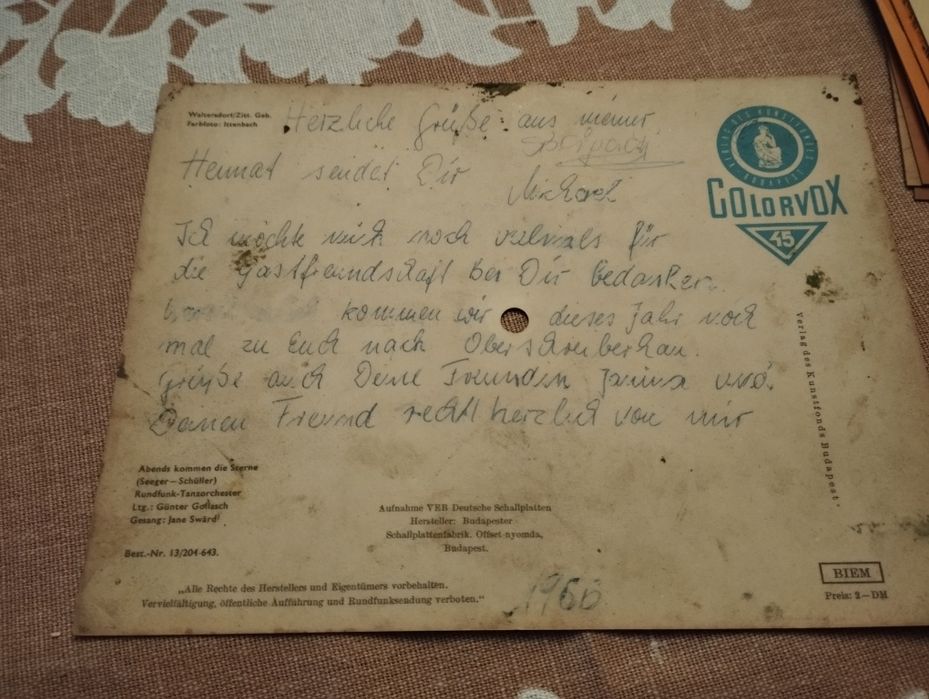 Waltersdorf/Zitt. Geb.
Farbfoto: Ittenbach
Herzliche Grüße aus meiner
Heimat sendet Dir
Michael
Ich möchte mich noch vielmals für
die Gastfreundschaft bei Dir bedanken.
kommen wir dieses Jahr noch
mal zu Euch nach Oberschreiberhau.
Grüße auch Deine Freundin Janina und
Deinen Freund recht herzlich von mir
VERLAG DES KUNSTFONDES
BUDAPEST
COLORVOX
45
Verlag des Kunstfonds Budapest.
Abends kommen die Sterne
(Seeger—Schüller)
Rundfunk-Tanzorchester
Ltg.: Günter Gollasch
Gesang: Jane Swärd
Best.-Nr. 13/204-643.
Aufnahme VEB Deutsche Schallplatten
Hersteller: Budapester
Schallplattenfabrik. Offset-nyomda,
Budapest.
„Alle Rechte des Herstellers und Eigentümers vorbehalten.
Vervielfältigung, öffentliche Aufführung und Rundfunksendung verboten."
1966
BIEM
Preis: 2—DM